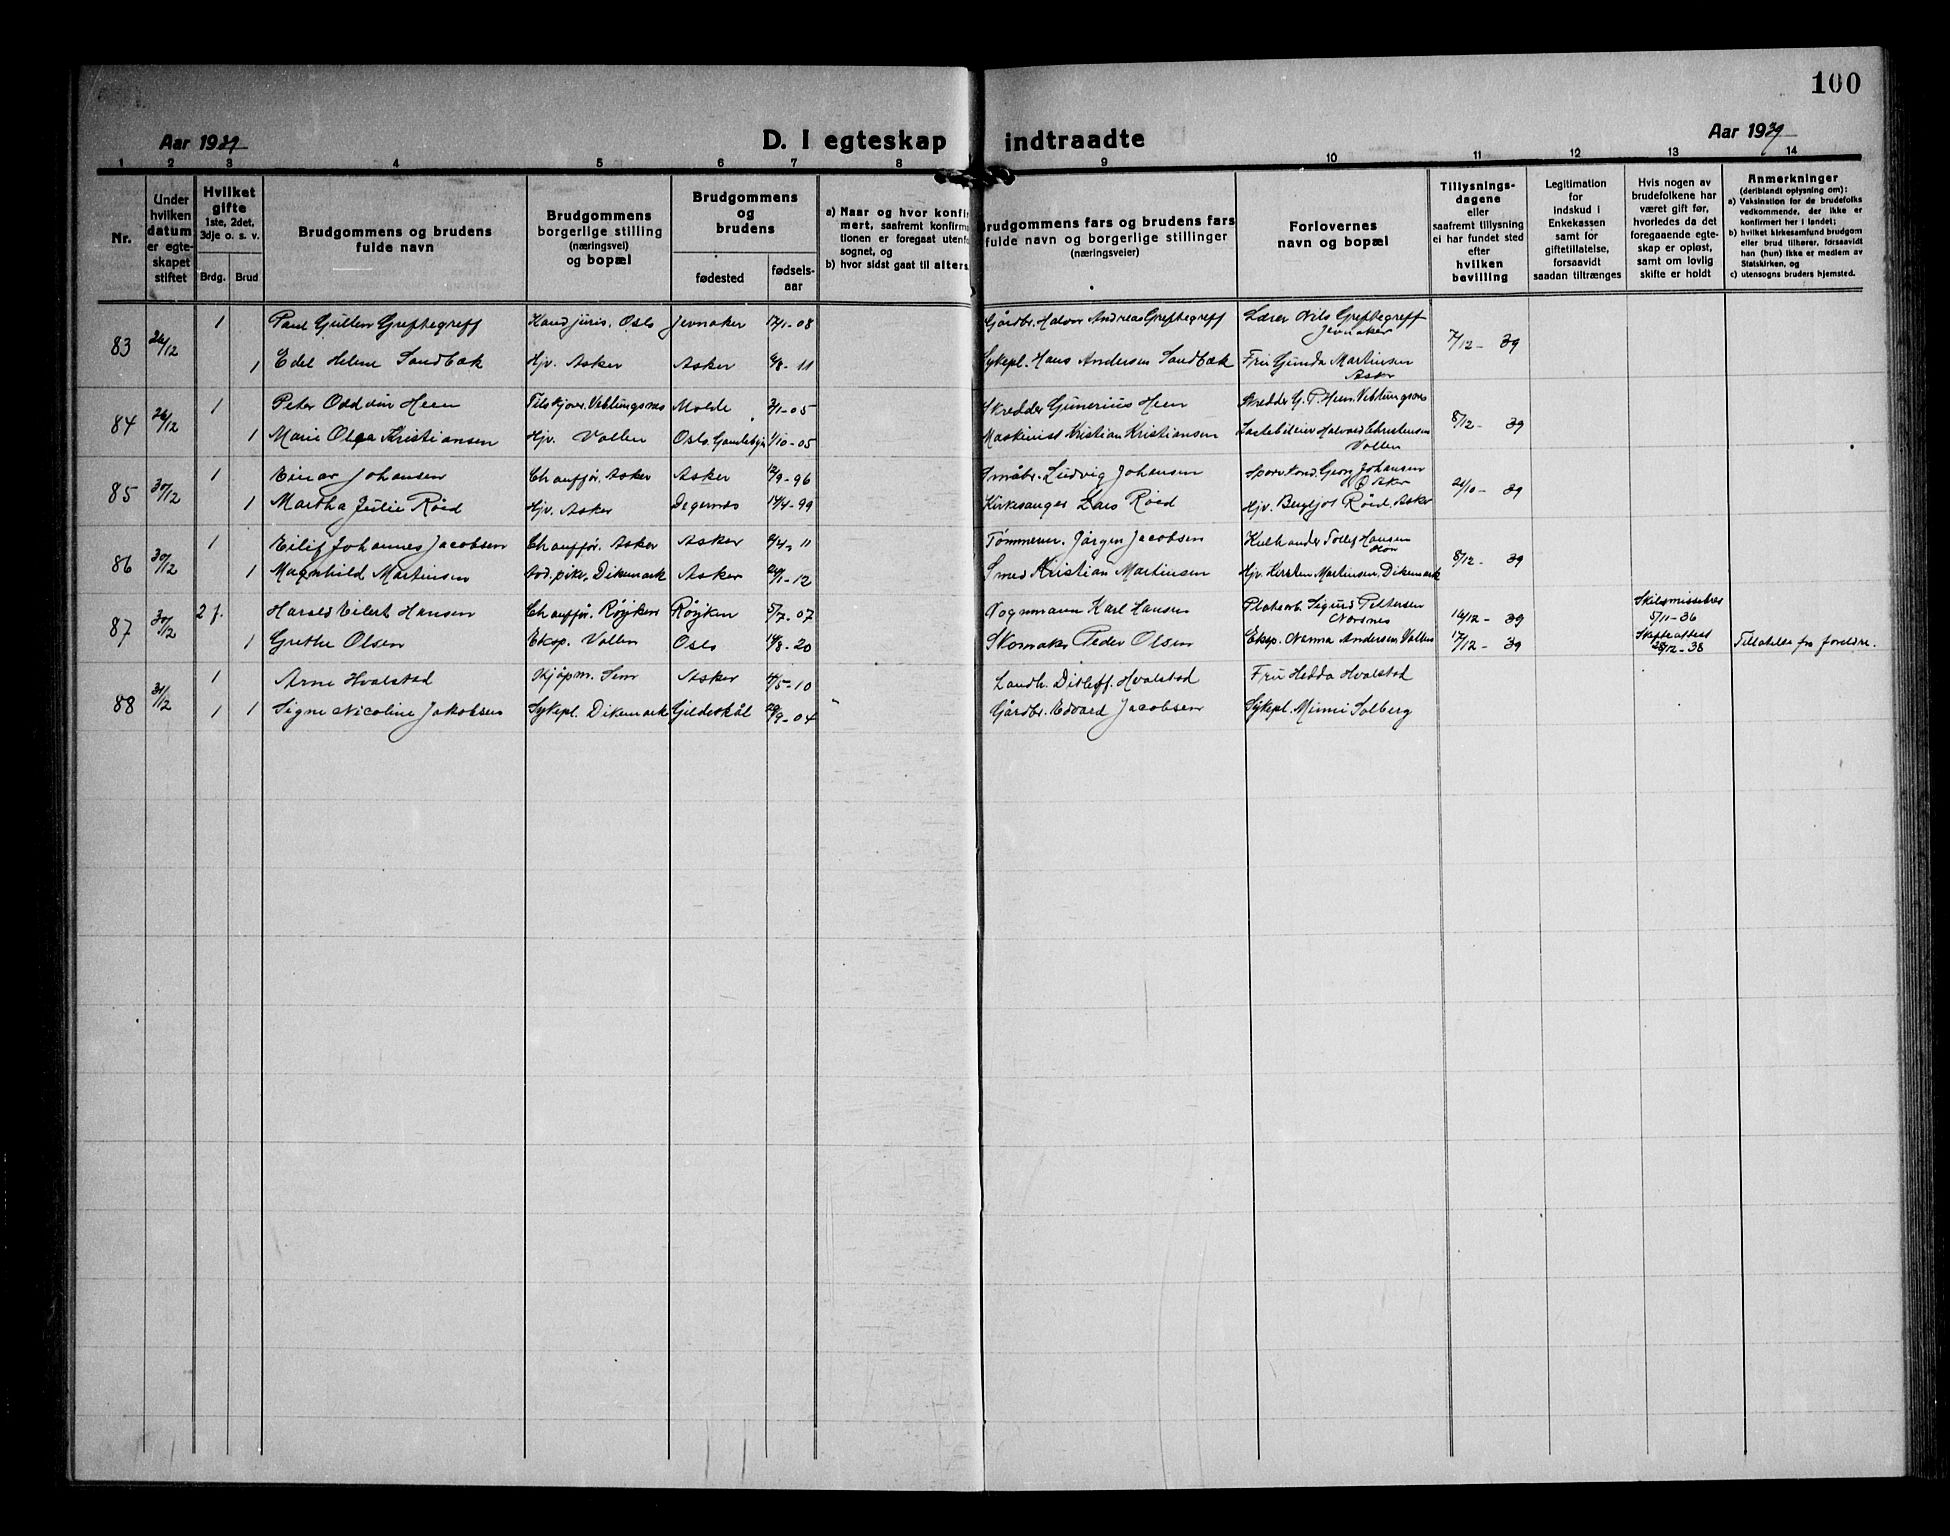 100
Aar 1939
D. I egteskap indtraadte
Aar 1939
1 2 3 4 5 6 7 8 9 10 11 12 13 14
Nr.
Under hvilken datum er egteskapet stiftet
Hvilket gifte
1ste, 2det, 3dje o. s. v.
Brdg. Brud
Brudgommens og brudens fulde navn
Brudgommens borgerlige stilling (næringsvei) og bopæl
Brudgommens og brudens
fødested fødselsaar
a) Naar og hvor konfirmert, saafremt konfirmationen er foregaat utenfor sognet, og
b) hvor sidst gaat til alters.
Brudgommens fars og brudens fars fulde navn og borgerlige stillinger (næringsveier)
Forlovernes navn og bopæl
Tillysningsdagene eller saafremt tillysning ei har fundet sted efter hvilken bevilling
Legitimation for indskud i Enkekassen samt for giftetillatelse, forsaavidt saadan tiltrænges
Hvis nogen av brudefolkene har været gift før, hvorledes da det foregaaende egteskap er opløst, samt om lovlig skifte er holdt
Anmerkninger
(deriblandt oplysning om):
a) Vaksination for de brudefolks vedkommende, der ikke er konfirmert her i landet;
b) hvilket kirkesamfund brudgom eller brud tilhører, forsaavidt han (hun) ikke er medlem av Statskirken, og
c) utensogns bruders hjemsted.
83 26/12 1 Paul Gullen Greftegreff Kand juris. Oslo Jevnaker 17/1-08 Gårdbr. Halvor Andreas Greftegreff Lærer Nils Greftegreff Jevnaker 7/12 - 39
1 Edel Helene Sandbæk Hj. Asker Asker 6/8-11 Sykepl. Hans Andersen Sandbæk Fru Gunda Martinsen Asker
84 26/12 1 Peter Oddvin Heen Veblungsnes Molde 3/1-05 Skredder Gunerius Heen Skredder G. P. Heen. Veblungsnes 8/12 - 39
1 Marie Olga Kristiansen Hj. Vollen Oslo. Gamlebyen 1/10-05 Maskinist Kristian Kristiansen Lastebileier Halvord Christensen Vollen
85 30/12 1 Einar Johansen Chauffør. Asker Asker 12/9-96 Småbr. Ludvig Johansen Georg Johansen Asker 21/10 - 39
1 Martha Julie Røed Hj. Asker Degernes 14/4-99 Kirkesanger Lars Røed Hj. Bergljot Røed. Asker
86 30/12 1 Eilif Johannes Jacobsen Chauffør. Asker Asker 4/4-11 Tømmerm. Jørgen Jacobsen Tollef Hansen 8/12 - 39
1 Magnhild Martinsen Dikemark Asker 26/1-12 Smed Kristian Martinsen Hj. Kirsten Martinsen, Dikemark
87 30/12 2 f. Harald Eilert Hansen Chauffør. Røyken Røyken 5/7-07 Vognmann Karl Hansen Sigurd Pettersen Nærsnes 16/12 - 39 Skilsmissebev. 5/11-36
1 Grethe Olsen Eksp. Vollen Oslo 14/8-20 Skomaker Peder Olsen Eksp. Nanna Andersen Vollen 17/12 - 39 Skifteattest 28/12-38 Tillatelse fra foreldre.
88 31/12 1 Arne Hvalstad Kjøpm. Sem Asker 4/5-10 Landh. Ditleff Hvalstad Fru Hedda Hvalstad
1 1 Signe Nicoline Jakobsen Sykepl. Dikemark Gildeskål 29/9-04 Gårdbr. Edvard Jacobsen Sykepl. Minni Solberg